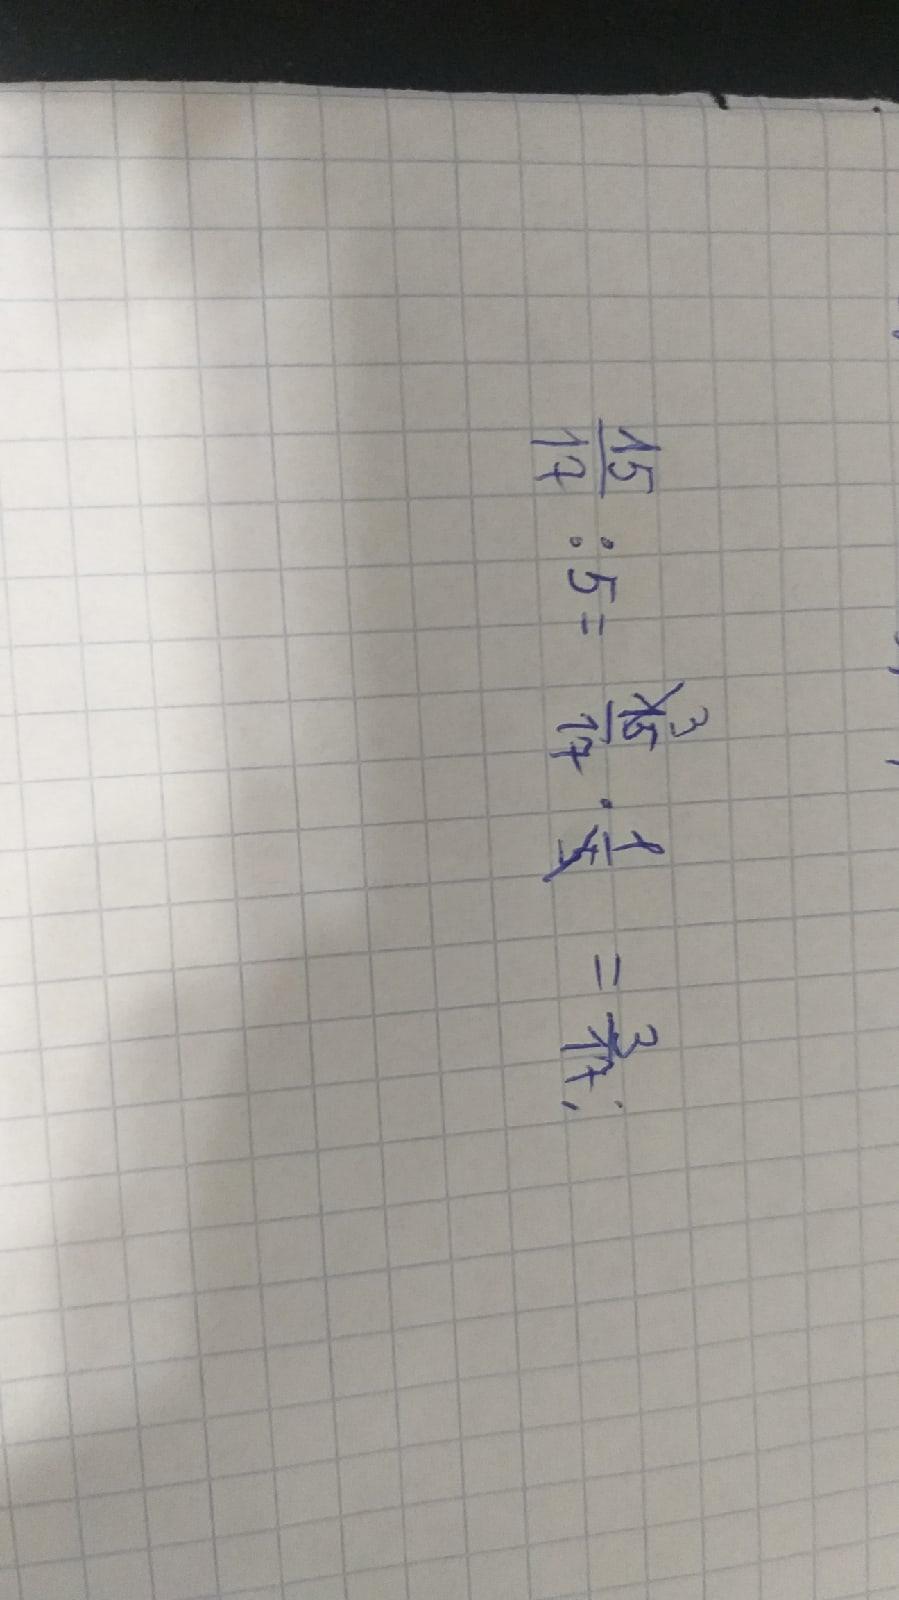 15/17 : 5 = 15/17 3 · 1/5 = 3/17;